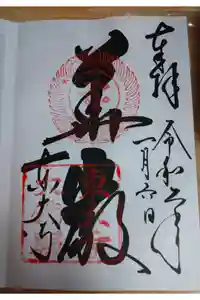 奉拝
令和六年
一月六日
華厳
東大寺